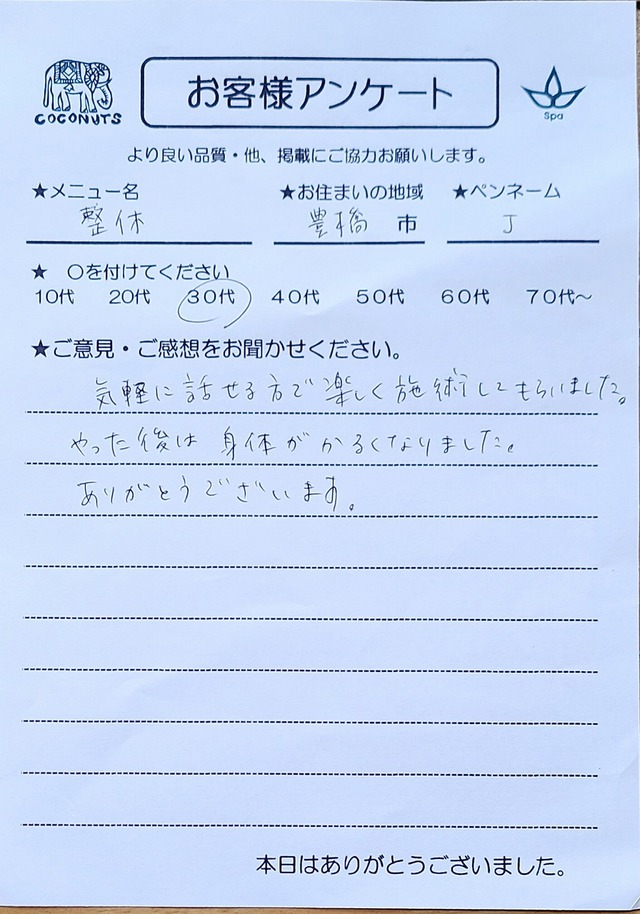 COCONUTS
お客様アンケート
Spa
より良い品質・他、掲載にご協力お願いします。
★メニュー名 ★お住まいの地域 ★ペンネーム
整体 豊橋 市 J
★ 〇を付けてください
10代 20代 30代 40代 50代 60代 70代~
★ご意見・ご感想をお聞かせください。
気軽に話せる方で楽しく施術してもらいました。
やった後は身体がかるくなりました。
ありがとうございます。
本日はありがとうございました。